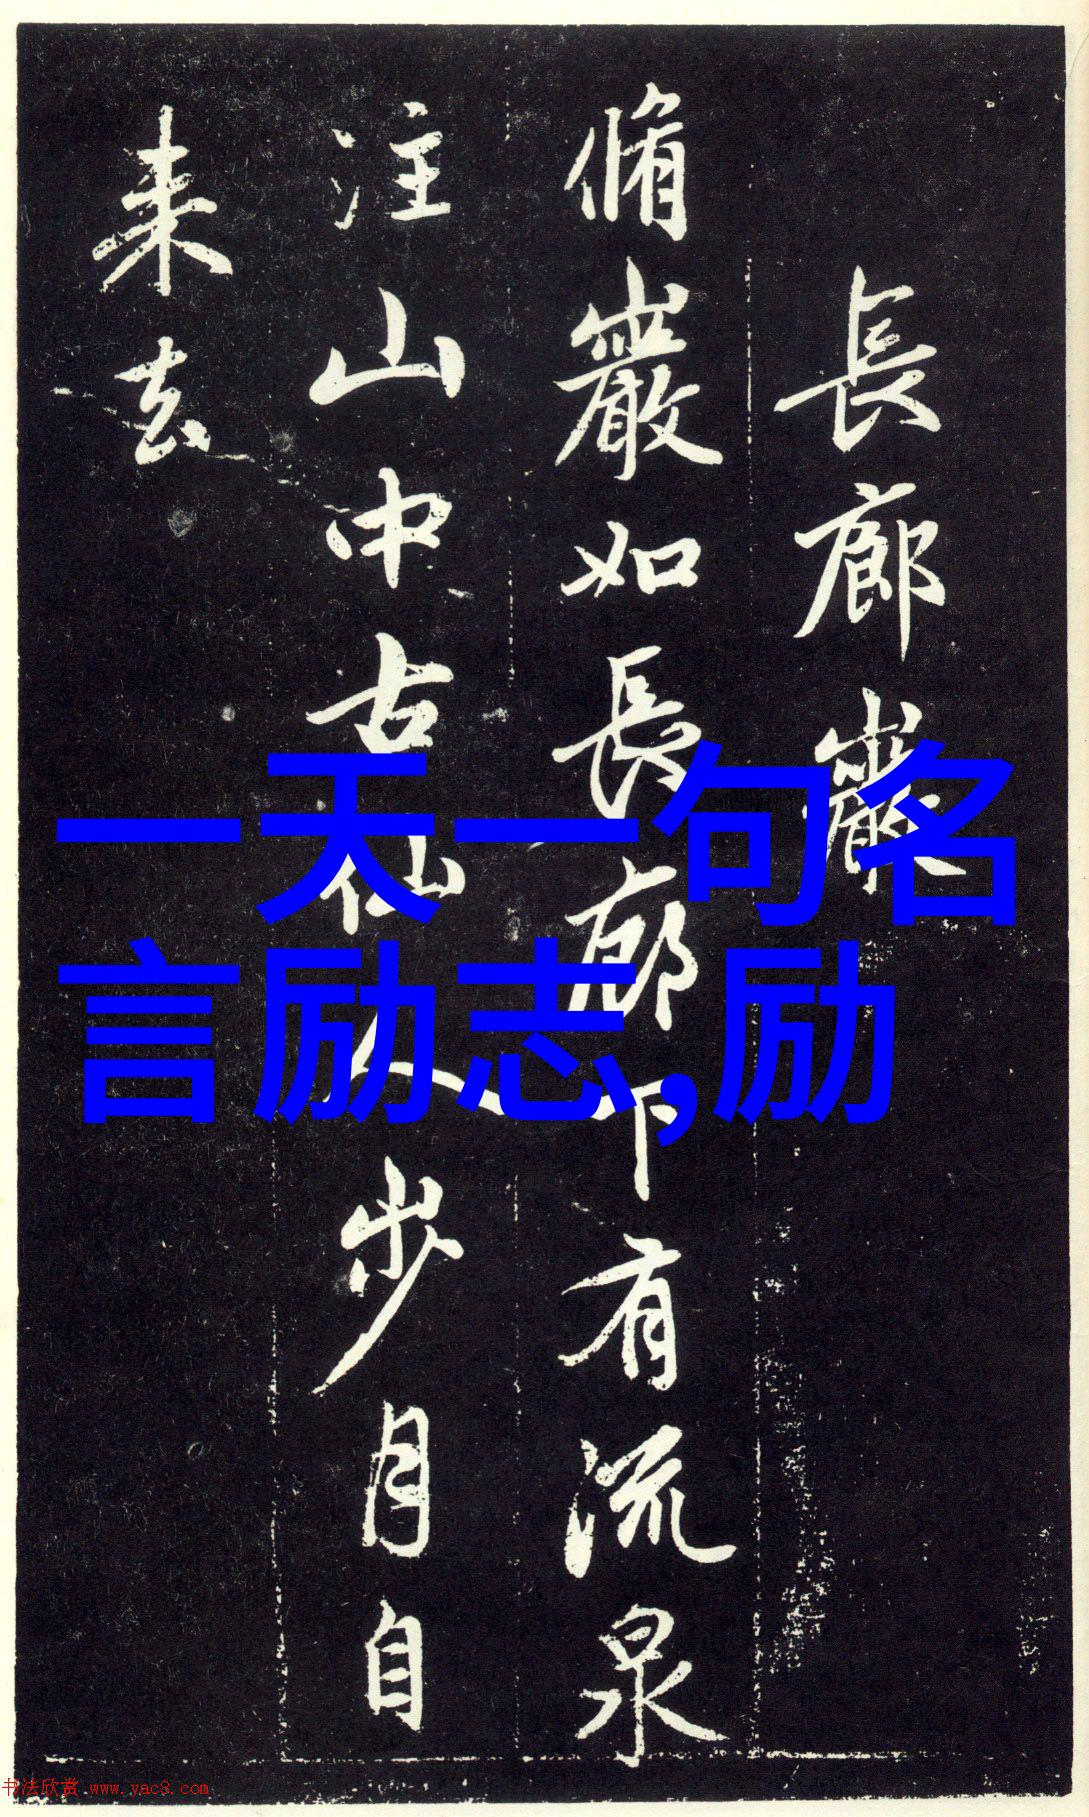 長廊巖
脩巖如長廊下有流泉
注山中古仙人步月自
来去
一天一句名
言励志,励
书法欣赏 www.yac8.com